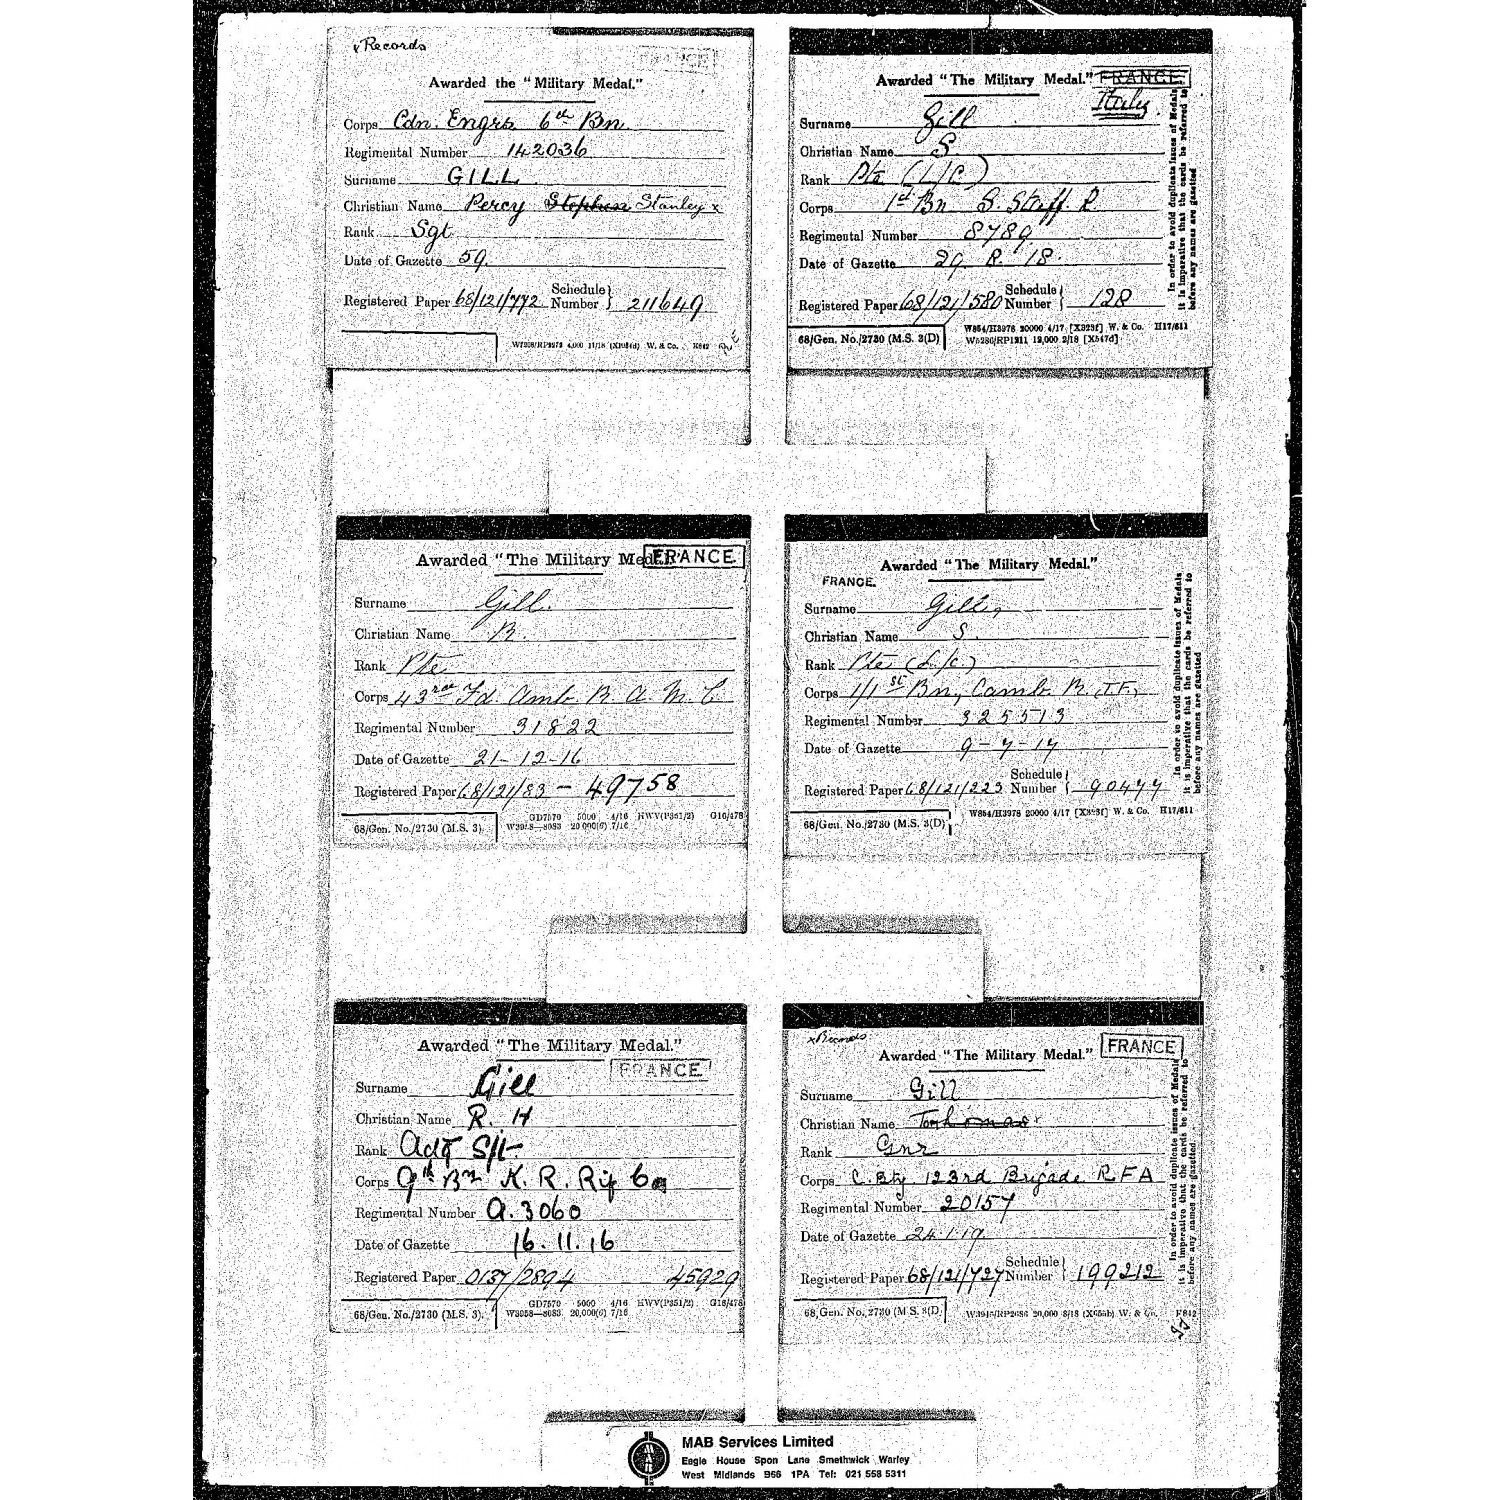 x Records
FRANCE
Awarded the "Military Medal."
Corps Cdn. Engrs 6th Bn.
Regimental Number 142036
Surname GILL
Christian Name Percy Stephen Stanley x
Rank Sgt
Date of Gazette 59.
Registered Paper 68/121/772 Schedule Number } 211649
4,000 11/18 W. & Co. K842
Awarded "The Military Medal." FRANCE.
Italy.
Surname Gill
Christian Name S.
Rank Pte (L/C)
Corps 1st Bn S. Staff. R.
Regimental Number 8789
Date of Gazette 29. 8. 18
Registered Paper 68/121/580 Schedule Number } 128
68/Gen. No./2730 (M.S. 3(D)
W864/H3976 20000 4/17 [X323f] W. & Co. H17/611
W5286/RP1211 12,000 2/18 [X547d]
In order to avoid duplicate issues of Medals
it is imperative that the cards be referred to
before any names are gazetted
Awarded "The Military Medal." FRANCE.
Surname Gill.
Christian Name B.
Rank Pte
Corps 43rd Fd. Amb. R. A. M. C.
Regimental Number 31822
Date of Gazette 21-12-16
Registered Paper 68/121/83 - 49758
68/Gen. No./2730 (M.S. 3).
GD7570 5000 4/16 HWV(P351/2) G16/478
W3958—8083 20,000(6) 7/16
Awarded "The Military Medal."
FRANCE.
Surname Gill,
Christian Name S.
Rank Pte (L/C)
Corps 1/1st Bn, Camb. R. (T.F.)
Regimental Number 325513
Date of Gazette 9-7-17
Registered Paper 68/121/223 Schedule Number } 90477
68/Gen. No./2730 (M.S. 3(D)
W864/H3976 20000 4/17 [X323f] W. & Co. H17/611
In order to avoid duplicate issues of Medals
it is imperative that the cards be referred to
before any names are gazetted
Awarded "The Military Medal."
FRANCE
Surname Gill
Christian Name R. H
Rank Actg S/t
Corps 9th Bn K. R. Rif Co
Regimental Number A. 3060
Date of Gazette 16. 11. 16
Registered Paper 0137/2894 45929
68/Gen. No./2730 (M.S. 3).
GD7570 5000 4/16 HWV(P351/2) G16/478
W3958—8083 20,000(6) 7/16
x Records
Awarded "The Military Medal." FRANCE
Surname Gill
Christian Name Tom x
Rank Gnr
Corps C. Bty 123rd Brigade RFA
Regimental Number 20157
Date of Gazette 24.1.19.
Registered Paper 68/121/727 Schedule Number } 199212
68/Gen. No. 2730 (M.S. 3(D)
20,000 8/18 W. & Co. F842
In order to avoid duplicate issues of Medals
it is imperative that the cards be referred to
before any names are gazetted.
MAB Services Limited
Eagle House Spon Lane Smethwick Warley
West Midlands B66 1PA Tel: 021 558 5311